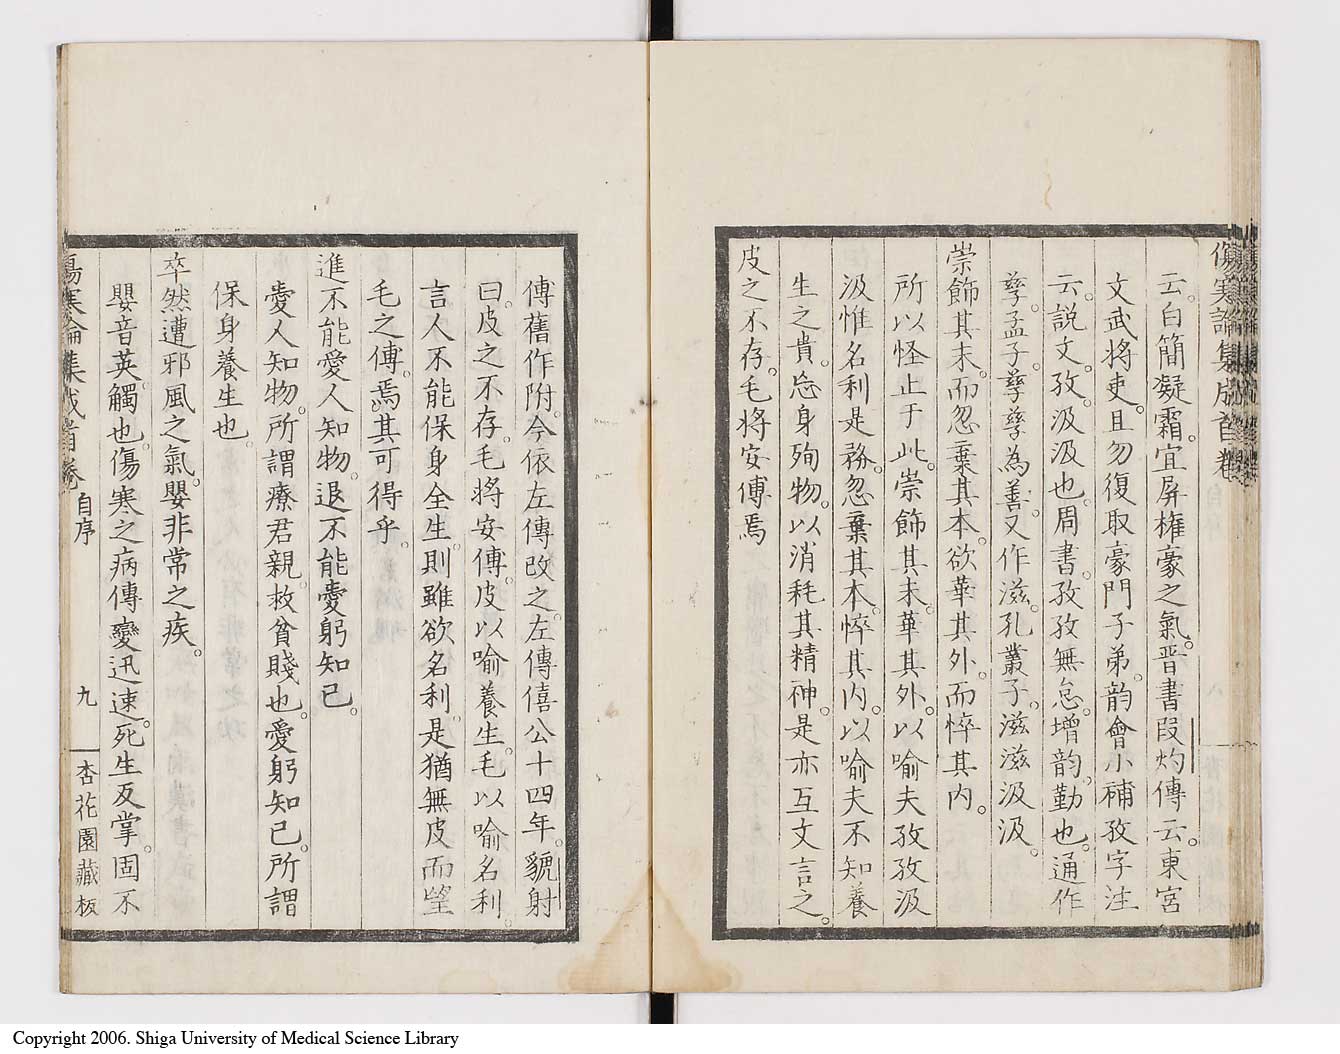 傷寒論集成首卷
云。白簡凝霜。宜屏権豪之氣。晋書段灼傳云。東宮
文武將吏。且勿復取豪門子弟。韵會小補孜字注
云。説文。孜。汲汲也。周書。孜孜無怠。增韵。勤也。通作
孳。孟子。孳孳為善。又作滋。孔叢子。滋滋汲汲。
崇飾其末。而忽棄其本。欲華其外。而悴其内。
所以怪止于此。崇飾其末。華其外。以喻夫孜孜汲
汲惟名利是務。忽棄其本。悴其内。以喻夫不知養
生之貴。忘身殉物。以消耗其精神。是亦互文言之。
皮之不存。毛將安傅焉
傅舊作附。今依左傳改之。左傳僖公十四年。虢射
曰。皮之不存。毛將安傅。皮以喻養生。毛以喻名利。
言人不能保身全生。則雖欲名利。是猶無皮而望
毛之傅焉。其可得乎。
進不能愛人知物。退不能愛躬知已。
愛人知物。所謂療君親。救貧賤也。愛躬知已。所謂
保身養生也。
卒然遭邪風之氣。嬰非常之疾。
嬰音英。觸也。傷寒之病。傳變迅速。死生反掌。固不
傷寒論集成首卷 自序 九 杏花園藏板
Copyright 2006. Shiga University of Medical Science Library